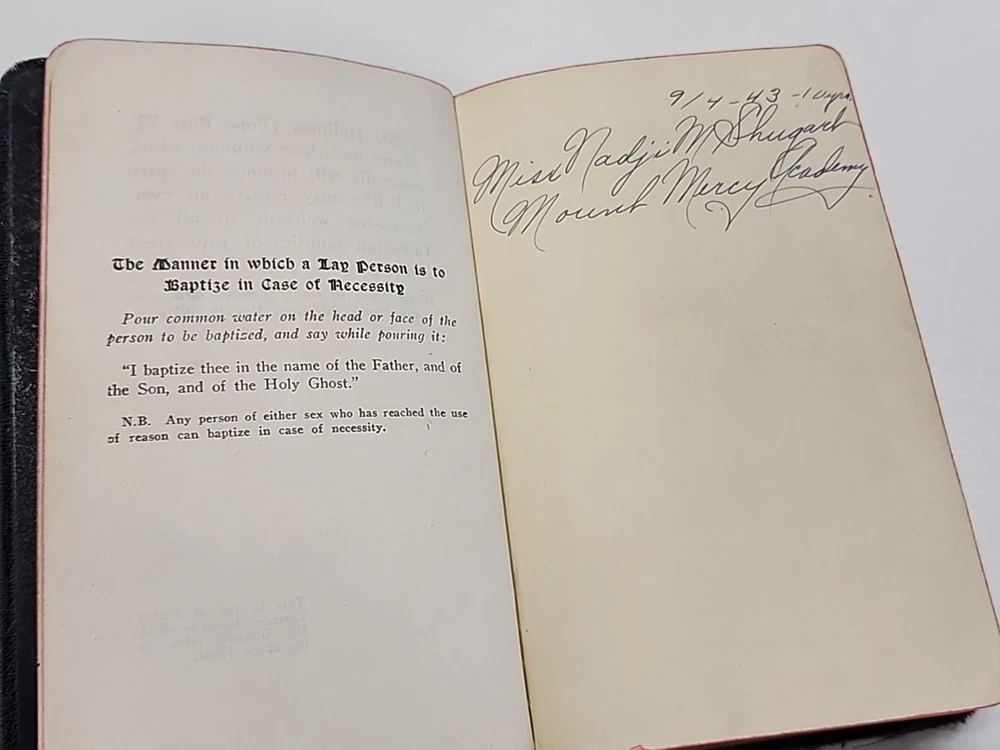 The Manner in which a Lay Person is to
Baptize in Case of Necessity
Pour common water on the head or face of the
person to be baptized, and say while pouring it:
“I baptize thee in the name of the Father, and of
the Son, and of the Holy Ghost.”
N.B. Any person of either sex who has reached the use
of reason can baptize in case of necessity.
9/4-43-10yrs.
Miss Nadji M Shugart
Mount Mercy Academy.